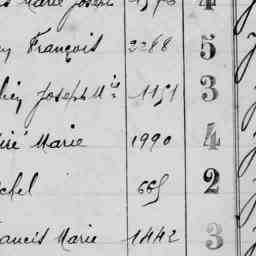 Marie Joseph 4
François 2288 5
Joseph M 1151 3
Marie 1990 4
665 2
Francis Marie 1442 3